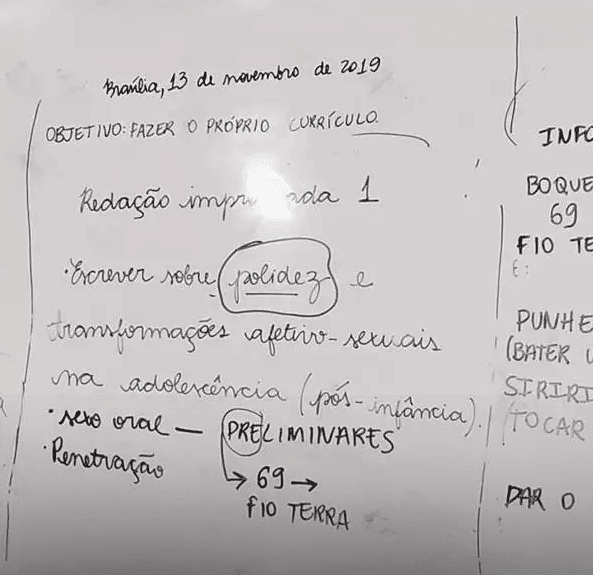 Brasília, 13 de novembro de 2019
OBJETIVO: FAZER O PRÓPRIO CURRÍCULO.
Redação 1
• Escrever sobre polidez e
transformações afetivo-sexuais
na adolescência (pós-infância).
• sexo oral — PRELIMINARES
• Penetração
→ 69 →
FIO TERRA
INFO
BOQUE
69
FIO TE
E:
PUNHE
(BATER U
SIRIRI
TOCAR
DAR O